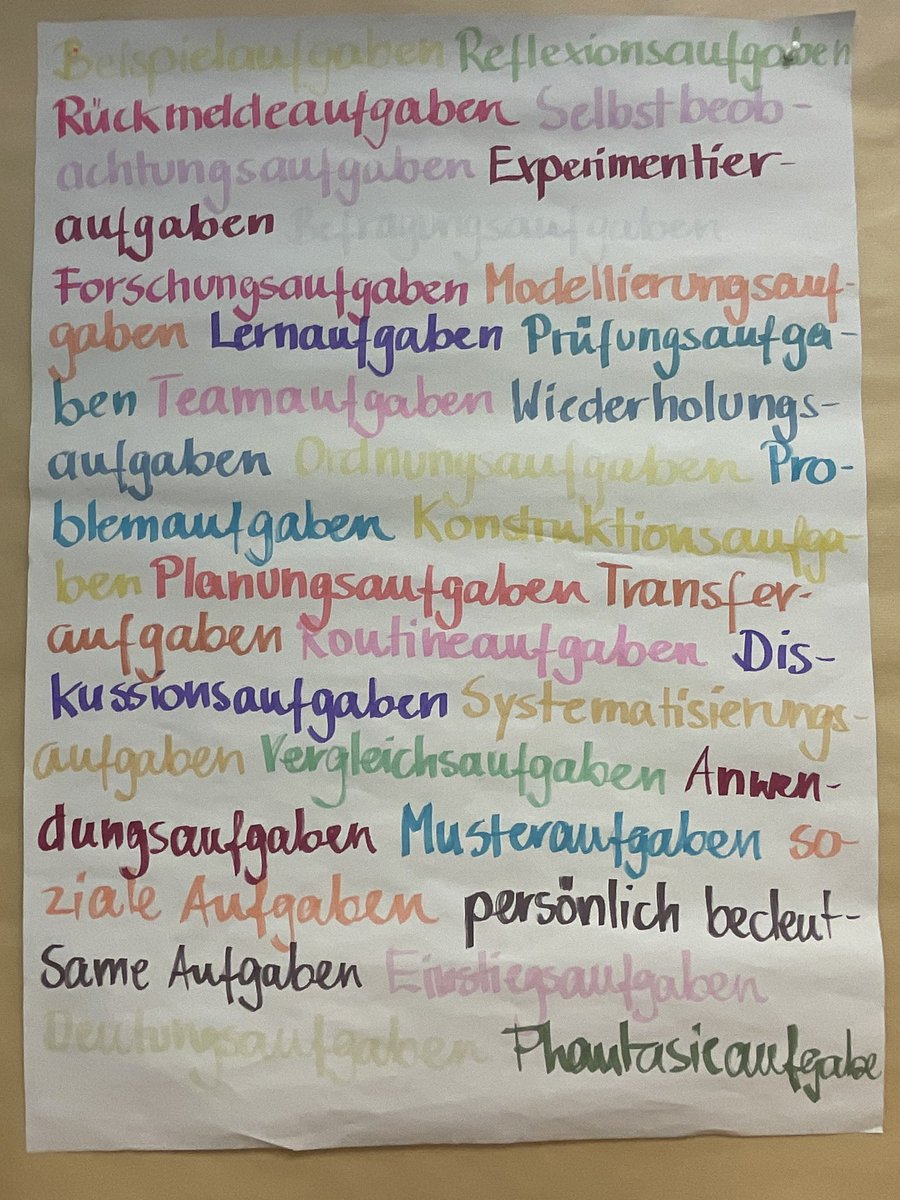 Beispielaufgaben Reflexionsaufgaben
Rückmeldeaufgaben Selbstbeob-
achtungsaufgaben Experimentier-
aufgaben Befragungsaufgaben
Forschungsaufgaben Modellierungsauf-
gaben Lernaufgaben Prüfungsaufga-
ben Teamaufgaben Wiederholungs-
aufgaben Ordnungsaufgaben Pro-
blemaufgaben Konstruktionsaufga-
ben Planungsaufgaben Transfer-
aufgaben Routineaufgaben Dis-
kussionsaufgaben Systematisierungs-
aufgaben Vergleichsaufgaben Anwen-
dungsaufgaben Musteraufgaben so-
ziale Aufgaben persönlich bedeut-
same Aufgaben Einstiegsaufgaben
Deutungsaufgaben Phantasieaufgabe